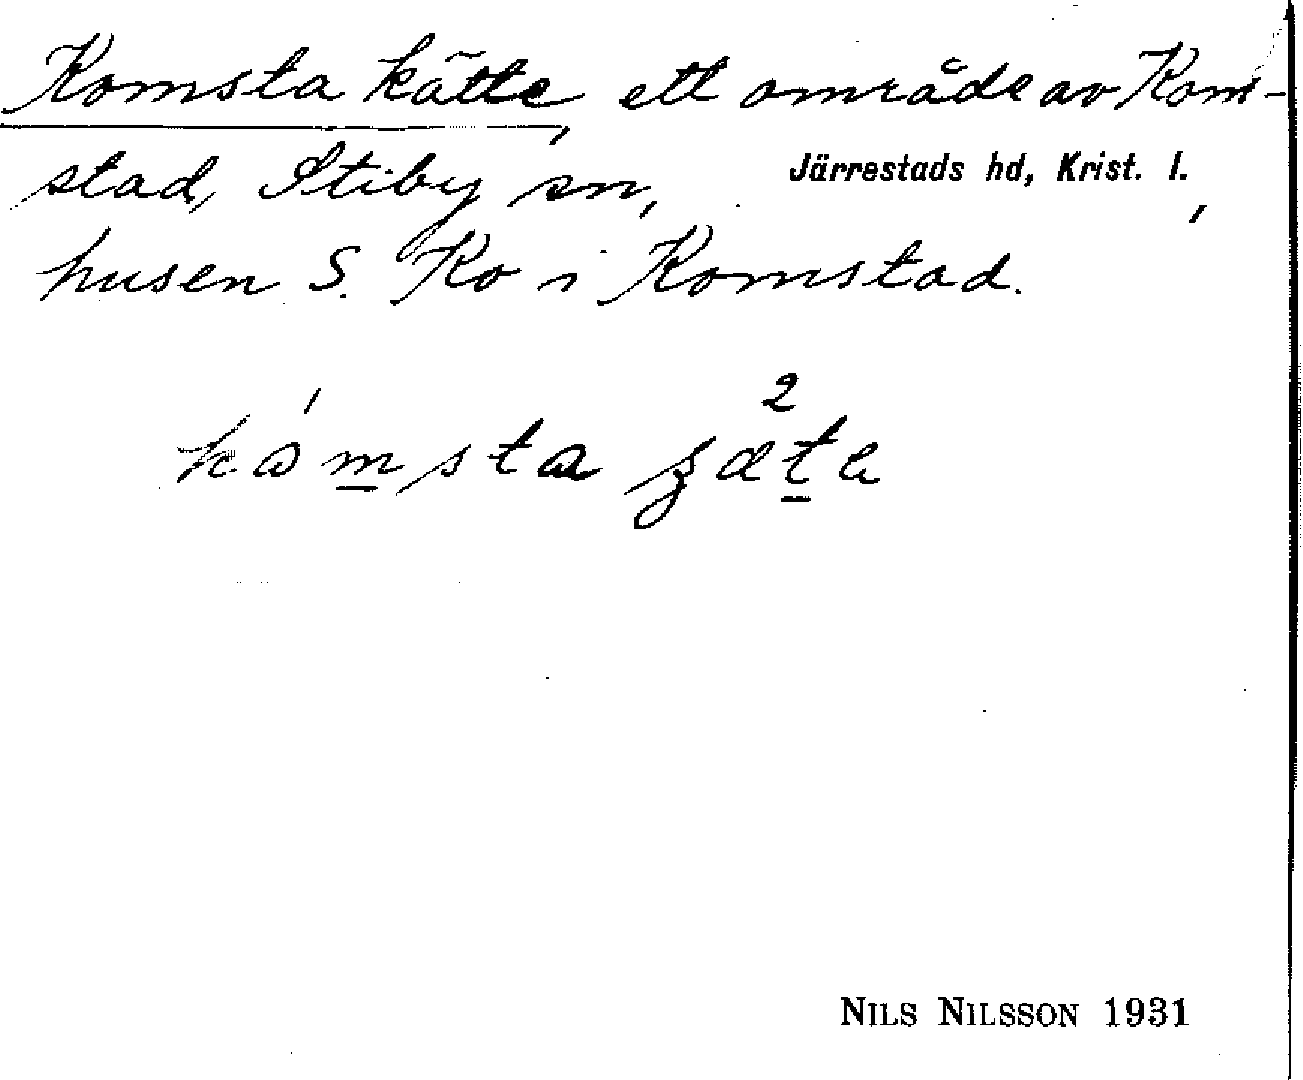 Komsta kätte, ett område av Kom-
stad, Stiby sn, Järrestads hd, Krist. l.,
husen S. Ko i Komstad.
NILS NILSSON 1931